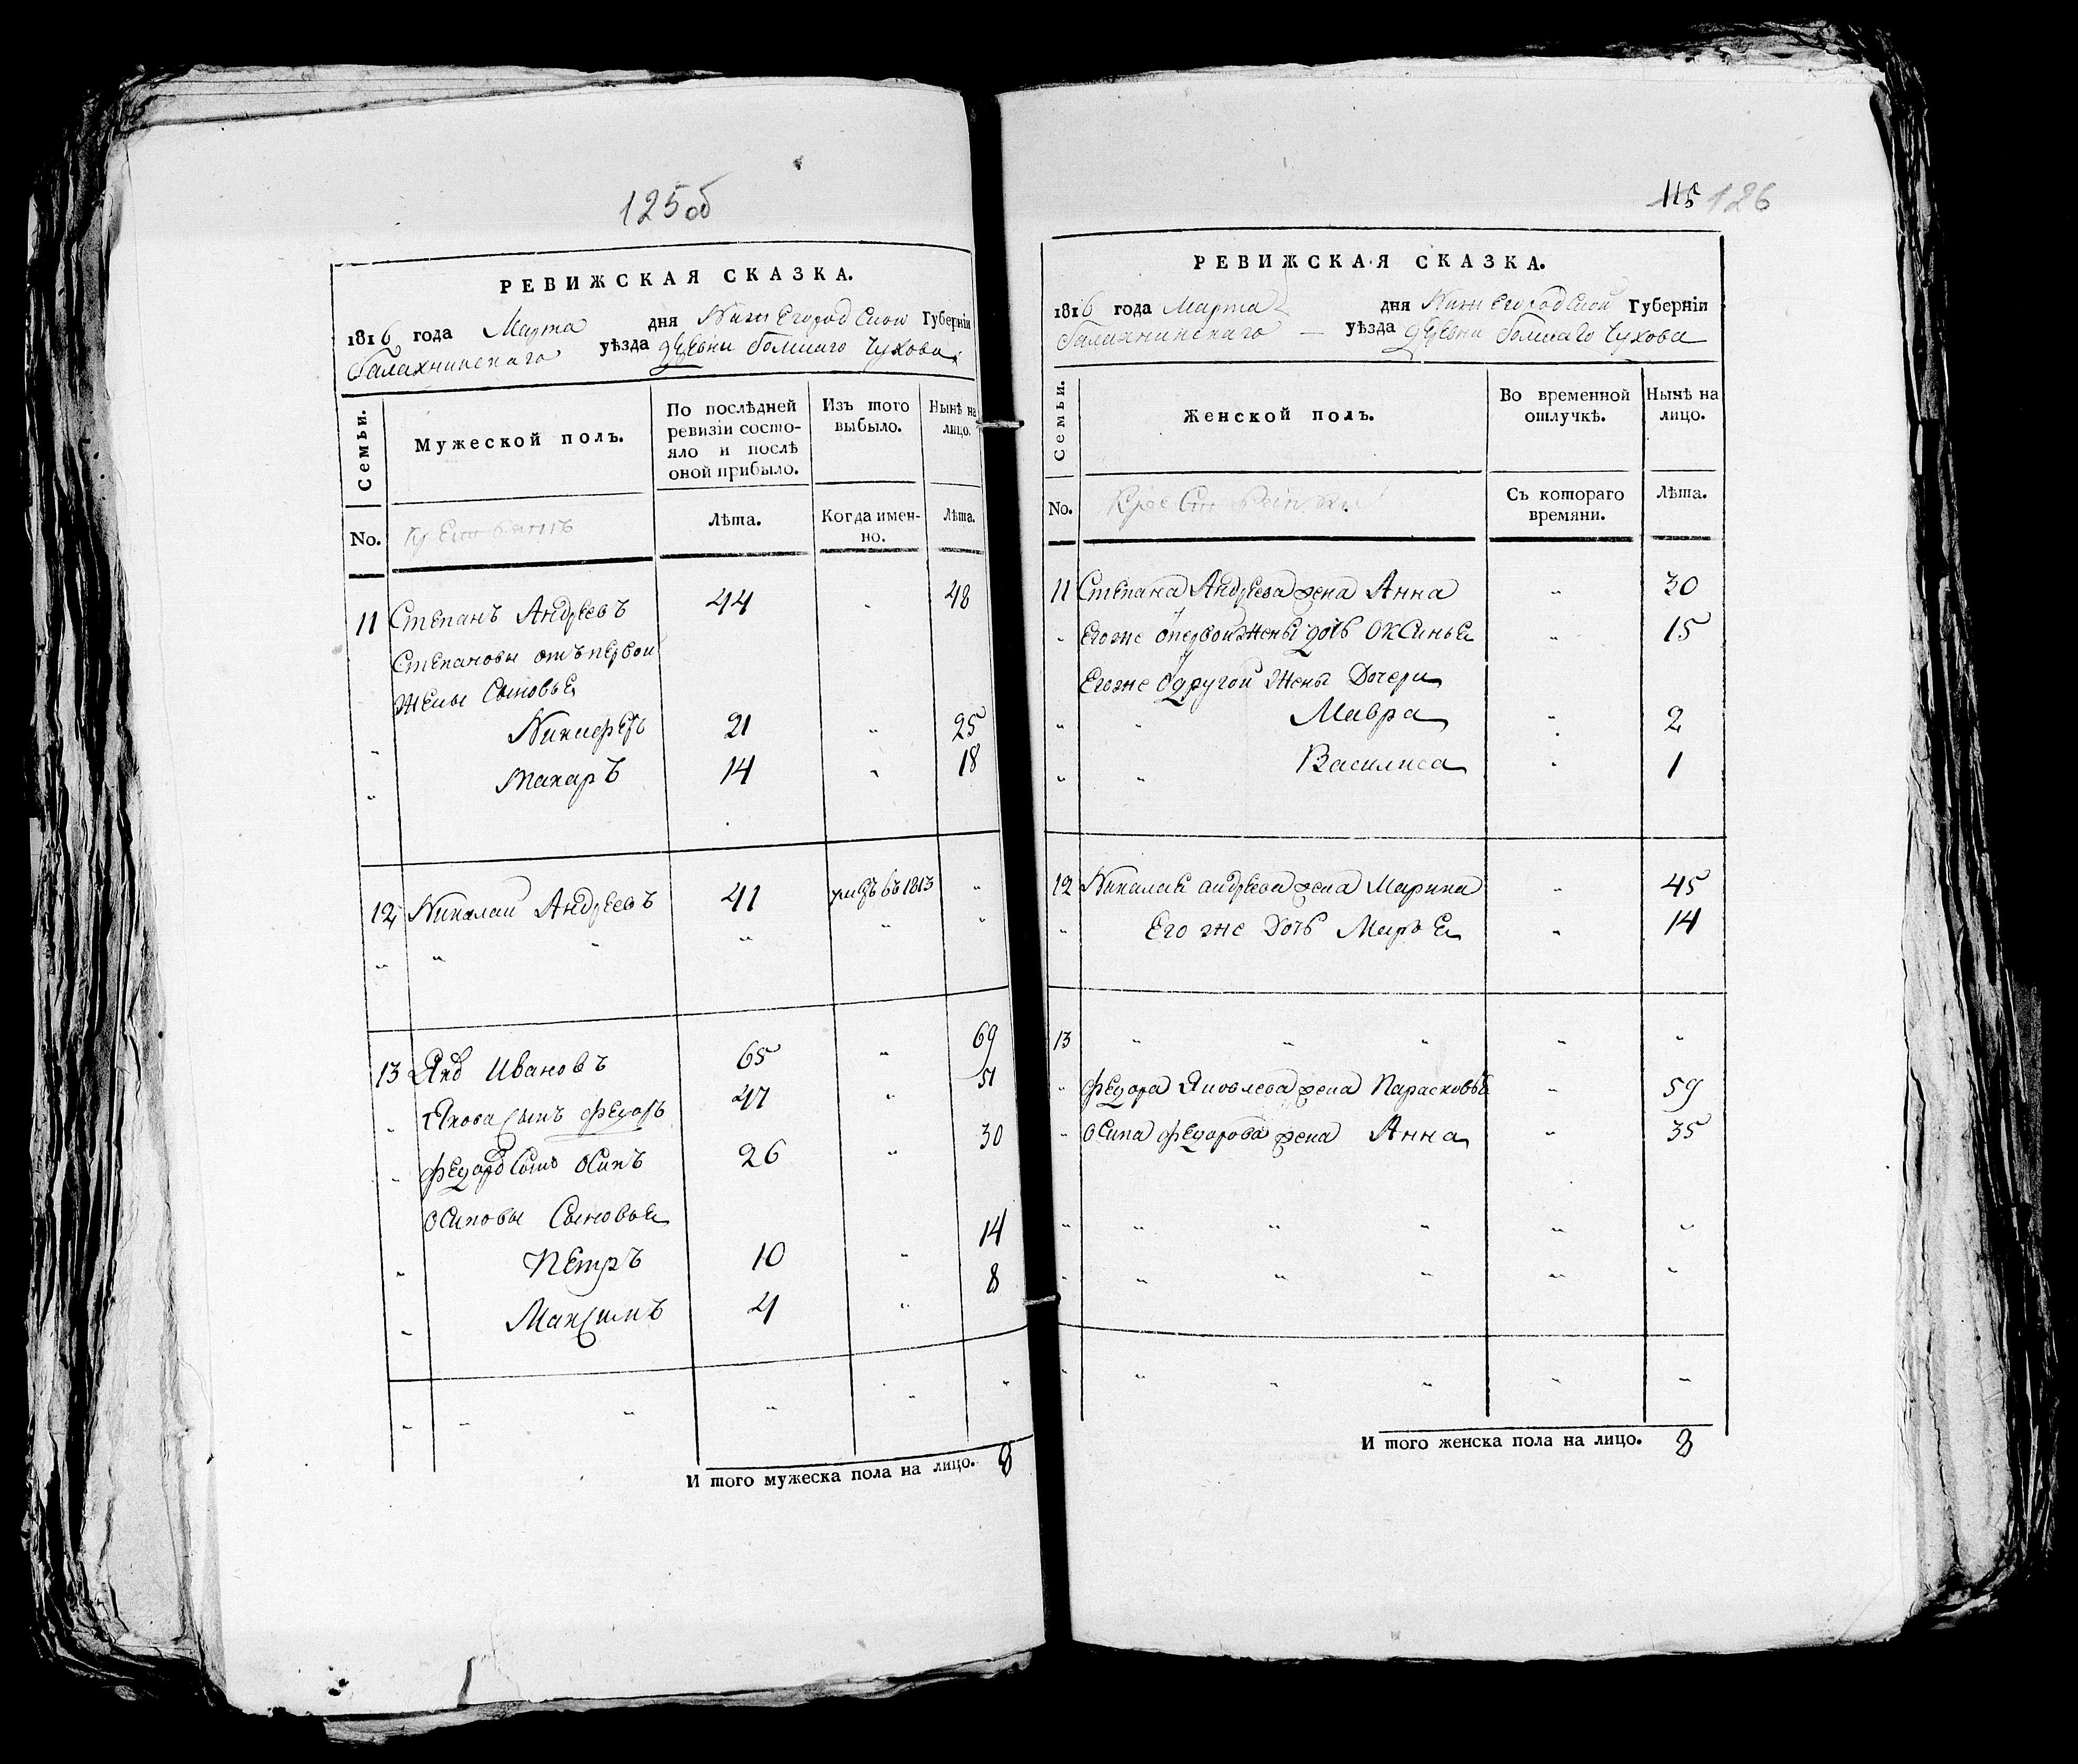 125об
РЕВИЖСКАЯ СКАЗКА.
1816 года Марта дня Нижегородской Губерніи
Балахнинскаго уѣзда Деревни Болшаго Чухова
Семьи.
Мужеской полъ.
По послѣдней ревизіи состо-
яло и послѣ
оной прибыло.
Изъ того
выбыло.
Нынѣ на
лицо.
No.
Лѣта.
Когда имен-
но.
Лѣта.
11 Степанъ Андреевъ 44 „ 48
Степановы отъ первой
жены Сыновья
„ Никифоръ 21 „ 25
„ Макаръ 14 „ 18
12 Николай Андреевъ 41 въ 1813 „
„ „ „ „ „ „
13 Яковъ Ивановъ 65 „ 69
„ Якова Сынъ Федоръ 47 „ 51
„ Федора Сынъ Осипъ 26 „ 30
Осиповы Сыновья
„ Петръ 10 „ 14
„ Максимъ 4 „ 8
„ „ „ „ „ „
И того мужеска пола на лицо. 8
115 126
РЕВИЖСКАЯ СКАЗКА.
1816 года Марта дня Нижегородской Губерніи
Балахнинскаго уѣзда Деревни Болшаго Чухова
Семьи.
Женской полъ.
Во временной
отлучкѣ.
Нынѣ на
лицо.
No.
Съ котораго
времяни.
Лѣта.
11 Степана Андреева жена Анна „ 30
„ Егоже о первой жены дочь Оксинья „ 15
Егоже о другой жены Дочери
„ „ Мавра „ 2
„ „ Василиса „ 1
12 Николая Андреева жена Марина „ 45
„ Его же Дочь Марья „ 14
13 „ „ „ „ „
„ Федора Яковлева жена Парасковья „ 59
„ Осипа Федорова жена Анна „ 35
„ „ „ „ „ „
„ „ „ „ „ „
„ „ „ „ „ „
И того женска пола на лицо. 8